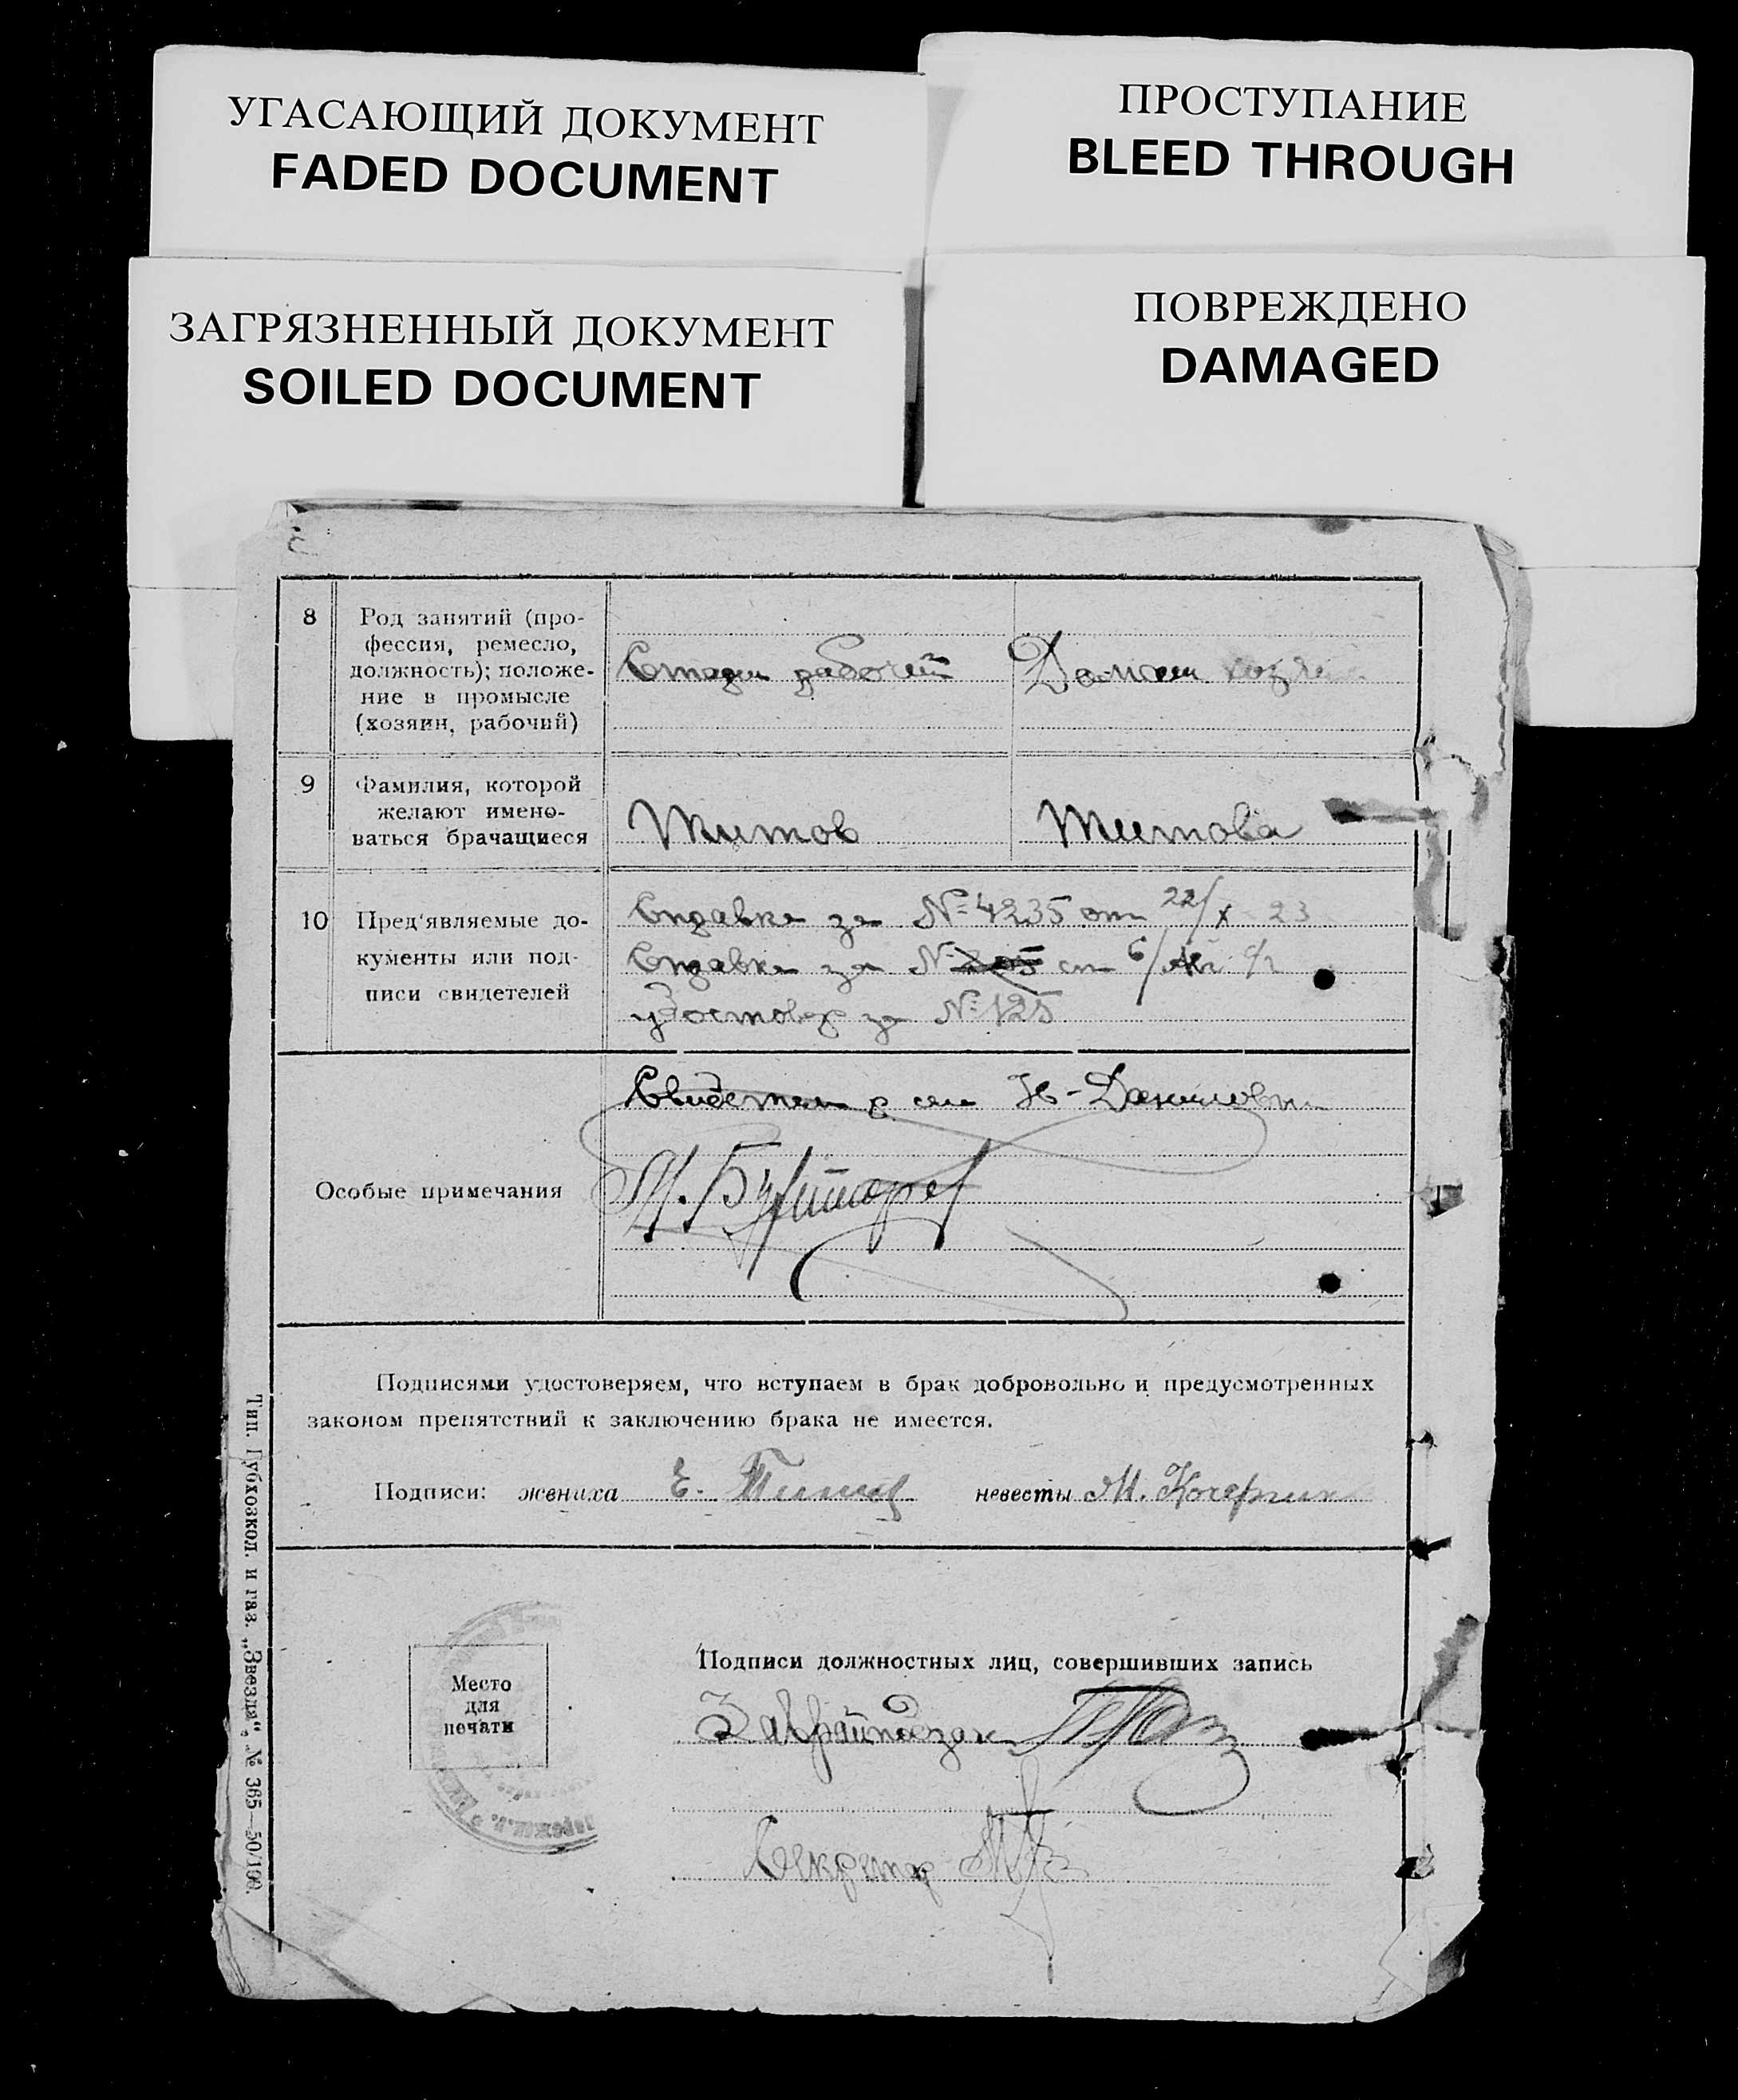 УГАСАЮЩИЙ ДОКУМЕНТ
FADED DOCUMENT
ПРОСТУПАНИЕ
BLEED THROUGH
ЗАГРЯЗНЕННЫЙ ДОКУМЕНТ
SOILED DOCUMENT
ПОВРЕЖДЕНО
DAMAGED
8
Род занятий (про-
фессия, ремесло,
должность); положе-
ние в промысле
(хозяин, рабочий)
рабочий
Домаш.
9
Фамилия, которой
желают имено-
ваться брачащиеся
Титов
Титова
10
Пред'являемые до-
кументы или под-
писи свидетелей
Справка за № 4235 от 22/X 23
Справка за № от 6/
удостовер за № 125
Особые примечания
Подписями удостоверяем, что вступаем в брак добровольно и предусмотренных
законом препятствий к заключению брака не имеется.
Подписи: жениха Е. Титов невесты М. Кочергин
Место
для
печати
Подписи должностных лиц, совершивших запись
Секретар
Тип. Губхозкол. и газ. „Звезда“, № 365—50/100.